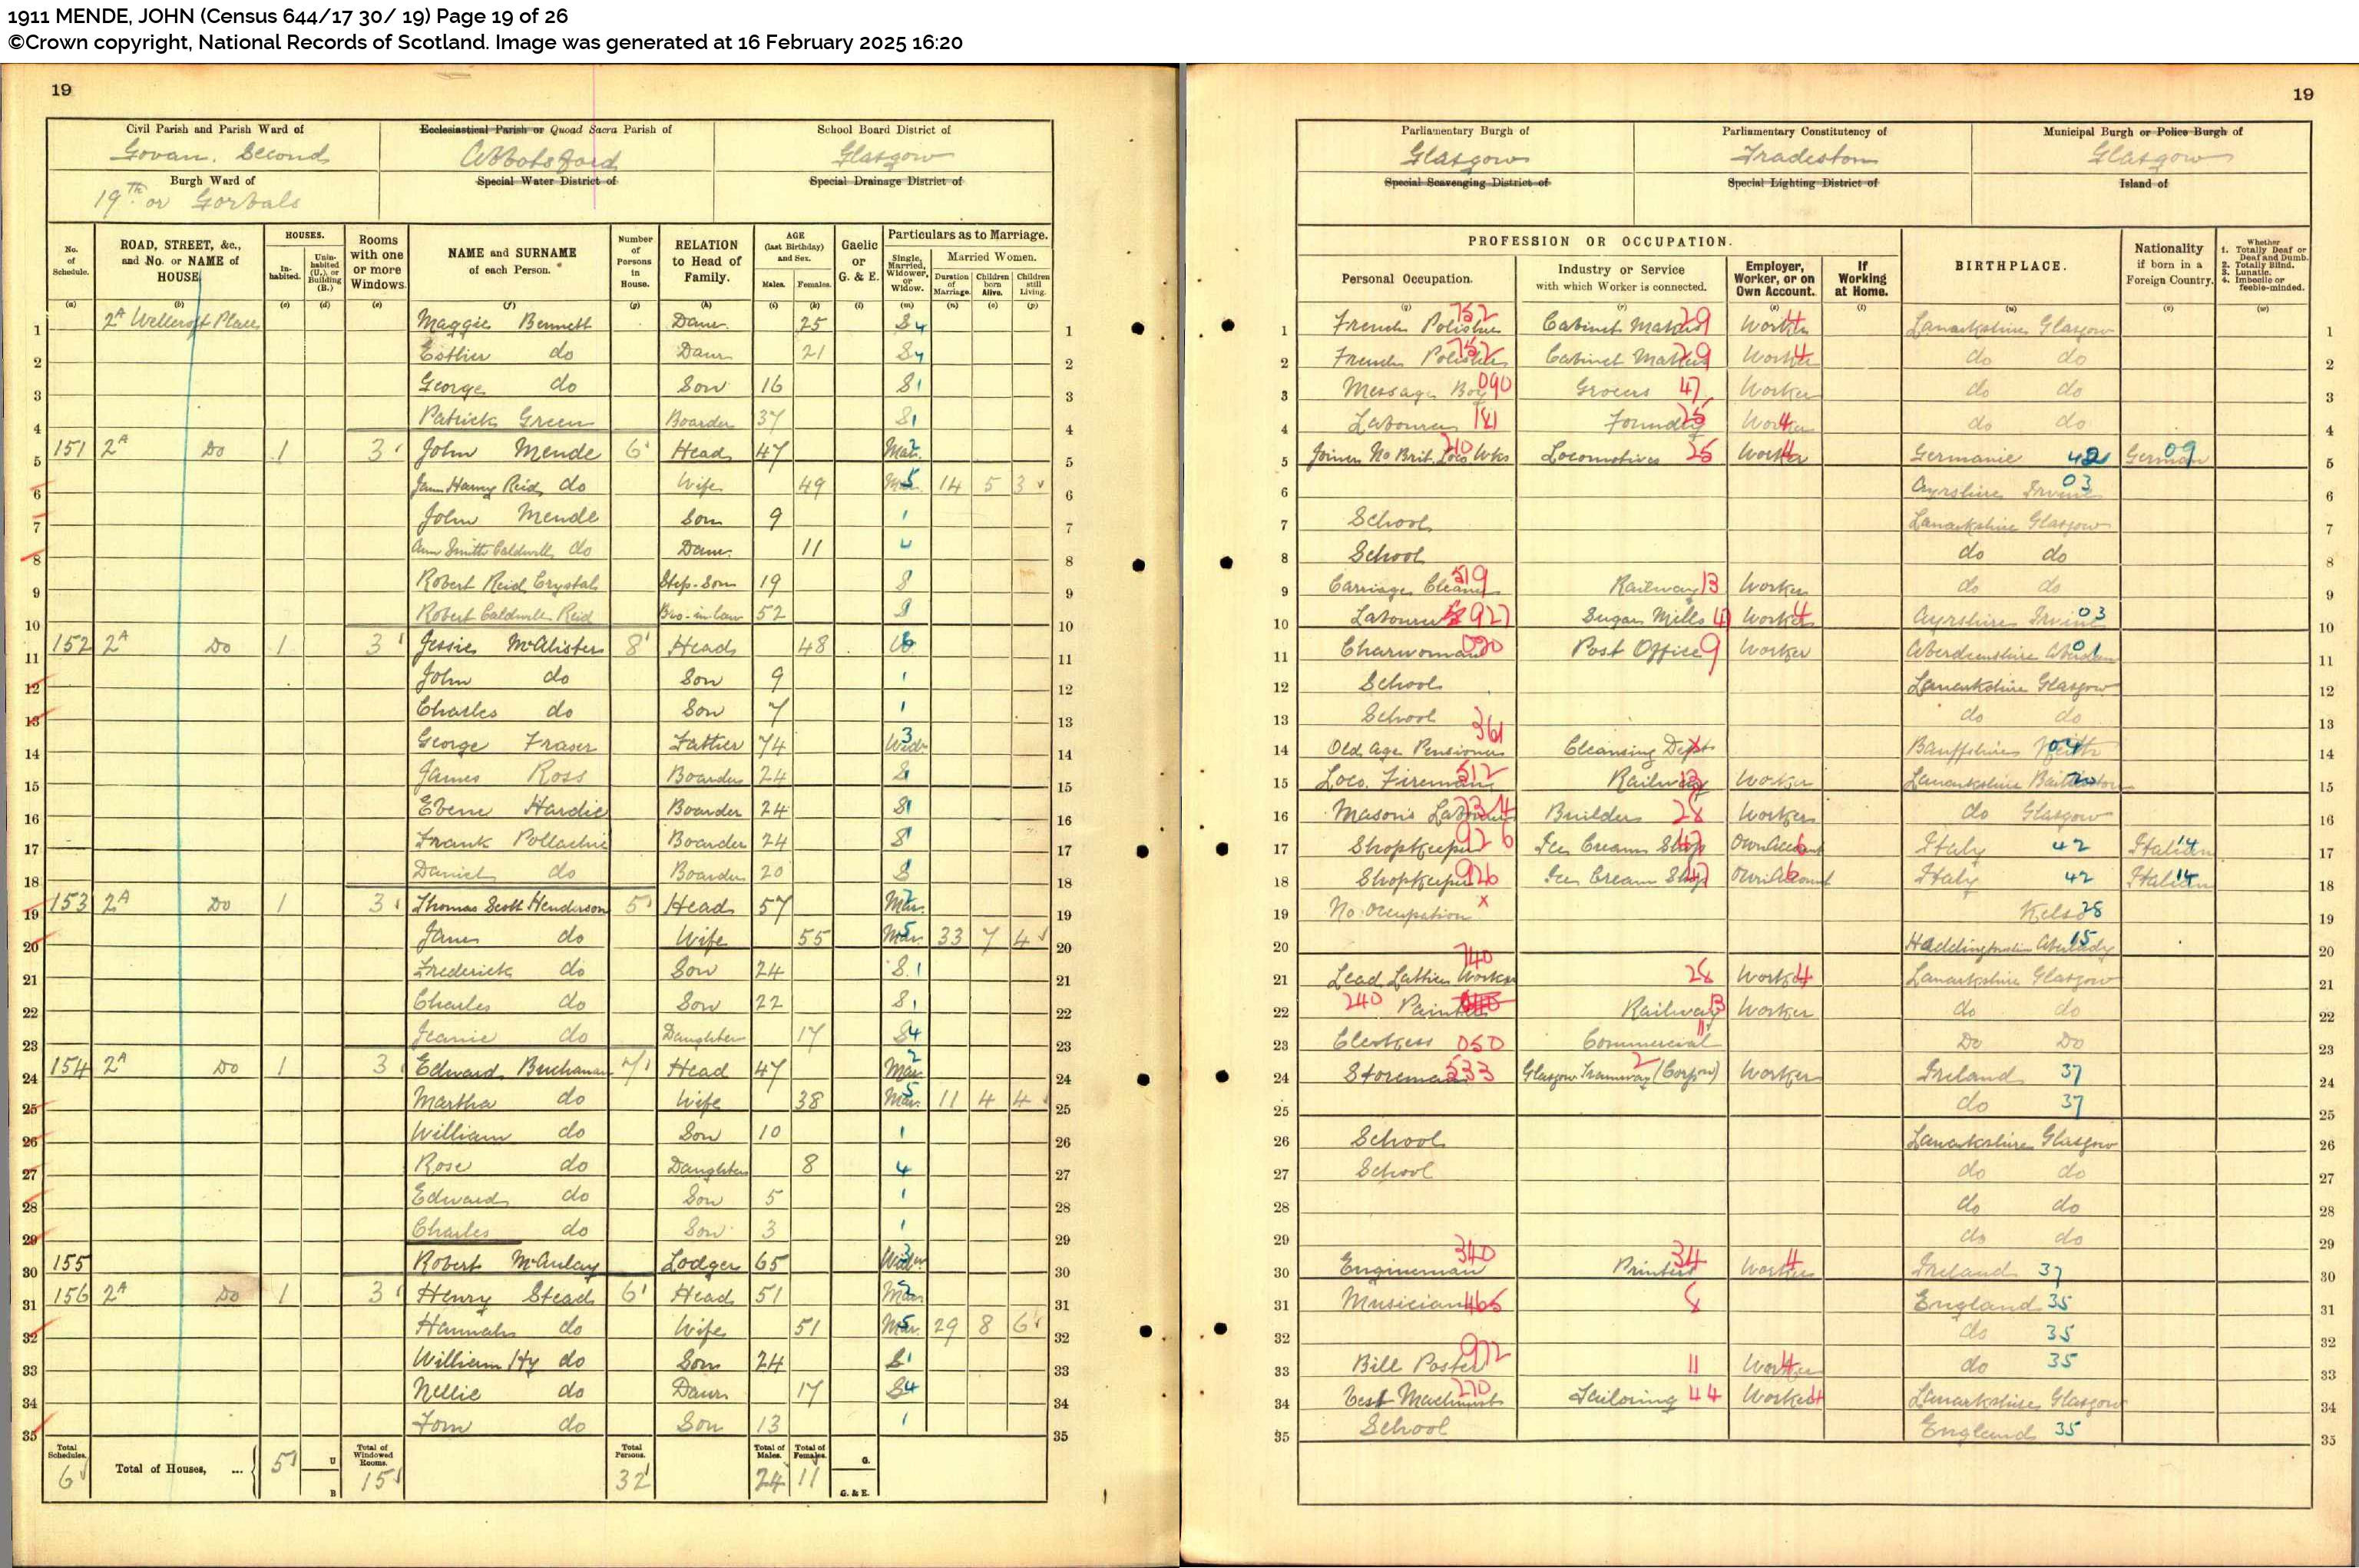 1911 MENDE, JOHN (Census 644/17 30/ 19) Page 19 of 26
©Crown copyright, National Records of Scotland. Image was generated at 16 February 2025 16:20
19
Civil Parish and Parish Ward of Ecclesiastical Parish or Quoad Sacra Parish of School Board District of
Govan. Second Abbotsford Glasgow
Burgh Ward of Special Water District of Special Drainage District of
19th or Gorbals
No. of Schedule. ROAD, STREET, &c., and No. or NAME of HOUSE HOUSES. Inhabited. Uninhabited (U.), or Building (B.) Rooms with one or more Windows. NAME and SURNAME of each Person. Number of Persons in House. RELATION to Head of Family. AGE (last Birthday) and Sex. Males. Females. Gaelic or G. & E. Particulars as to Marriage. Single, Married, Widower, or Widow. Married Women. Duration of Marriage. Children born Alive. Children still Living.
(a) (b) (c) (d) (e) (f) (g) (h) (i) (k) (l) (m) (n) (o) (p)
1 2A Wellcroft Place Maggie Bennett Daur. 25 S 4 1
2 Esther do Daur 21 S 4 2
3 George do Son 16 S 1 3
4 Patrick Green Boarder 37 S 1 4
5 151 2A Do 1 3 John Mende 6 Head 47 Mar. 2 5
6 Jane Harvey Reid do Wife 49 Mar. 5 14 5 3 6
7 John Mende Son 9 1 7
8 Ann Smith Caldwell do Daur. 11 4 8
9 Robert Reid Crystal Step-Son 19 S 9
10 Robert Caldwell Reid Bro-in-law 52 S 10
11 152 2A Do 1 3 Jessie McAlister 8 Head 48 6 11
12 John do Son 9 1 12
13 Charles do Son 7 1 13
14 George Fraser Father 74 Widr 3 14
15 James Ross Boarder 24 S 1 15
16 Eben Hardie Boarder 24 S 1 16
17 Frank Boarder 24 S 1 17
18 Daniel do Boarder 20 S 18
19 153 2A Do 1 3 Thomas Scott Henderson 5 Head 57 Mar. 2 19
20 Jane do Wife 55 Mar. 5 33 7 4 20
21 Frederick do Son 24 S. 1 21
22 Charles do Son 22 S. 1 22
23 Jeanie do Daughter 17 S 4 23
24 154 2A Do 1 3 Edward Buchanan 7 Head 47 Mar. 2 24
25 Martha do Wife 38 Mar. 5 11 4 4 25
26 William do Son 10 1 26
27 Rose do Daughter 8 4 27
28 Edward do Son 5 1 28
29 Charles do Son 3 1 29
30 155 Robert McAulay Lodger 65 3 30
31 156 2A Do 1 3 Henry Stead 6 Head 51 Mar 2 31
32 Hannah do Wife 51 Mar. 5 29 8 6 32
33 William Hy do Son 24 S 1 33
34 Nellie do Daur 17 S 4 34
35 Tom do Son 13 1 35
Total Schedules. 6 Total of Houses, ... 5 U B Total of Windowed Rooms. 15 Total Persons. 32 Total of Males. 24 Total of Females. 11 G. G. & E.
19
Parliamentary Burgh of Parliamentary Constitutency of Municipal Burgh or Police Burgh of
Glasgow Tradeston Glasgow
Special Scavenging District of Special Lighting District of Island of
PROFESSION OR OCCUPATION. BIRTHPLACE. Nationality if born in a Foreign Country. Whether 1. Totally Deaf or Deaf and Dumb. 2. Totally Blind. 3. Lunatic. 4. Imbecile or feeble-minded.
Personal Occupation. Industry or Service with which Worker is connected. Employer, Worker, or on Own Account. If Working at Home.
1 French Polisher 752 Cabinet Maker 29 Worker 4 Lanarkshire Glasgow 1
2 French Polisher 752 Cabinet Maker 29 Worker 4 do do 2
3 Message Boy 090 Grocers 47 Worker do do 3
4 Labourer 181 Foundry 25 Worker 4 do do 4
5 Joiner No Brit. Loco Wks 210 Locomotives 25 Worker 4 Germanie 42 German 09 5
6 Ayrshire Irvine 03 6
7 School Lanarkshire Glasgow 7
8 School do do 8
9 Carriage Cleaner 519 Railway 13 Worker do do 9
10 Labourer 927 Sugar Mills Worker 4 Ayrshire Irvine 03 10
11 Charwoman 090 Post Office 9 Worker Aberdeenshire Aberdeen 01 11
12 School Lanarkshire Glasgow 12
13 School do do 13
14 Old Age Pensioner 361 Cleansing Dept x Banffshire Keith 04 14
15 Loco. Fireman 512 Railway 13 Worker Lanarkshire 15
16 Mason's Labourer 234 Builder 28 Worker do Glasgow 16
17 Shopkeeper 926 Ice Cream Shop 47 Own Account 6 Italy 42 Italian 14 17
18 Shopkeeper 926 Ice Cream Shop 47 Own Account 6 Italy 42 Italian 14 18
19 No Occupation x Kelso 28 19
20 Haddingtonshire Aberlady 15 20
21 Lead Worker 740 28 Worker 4 Lanarkshire Glasgow 21
22 240 Painter Railway 13 Worker do do 22
23 Clerkess 050 Commercial 11 Do Do 23
24 Storeman 533 Glasgow Tramway (Corpon) 2 Worker Ireland 37 24
25 do 37 25
26 School Lanarkshire Glasgow 26
27 School do do 27
28 do do 28
29 do do 29
30 Engineman 340 Printers 34 Worker 4 Ireland 37 30
31 Musician 465 8 England 35 31
32 do 35 32
33 Bill Poster 972 11 Worker 4 do 35 33
34 Vest Machinist 270 Tailoring 44 Worker 4 Lanarkshire Glasgow 34
35 School England 35 35